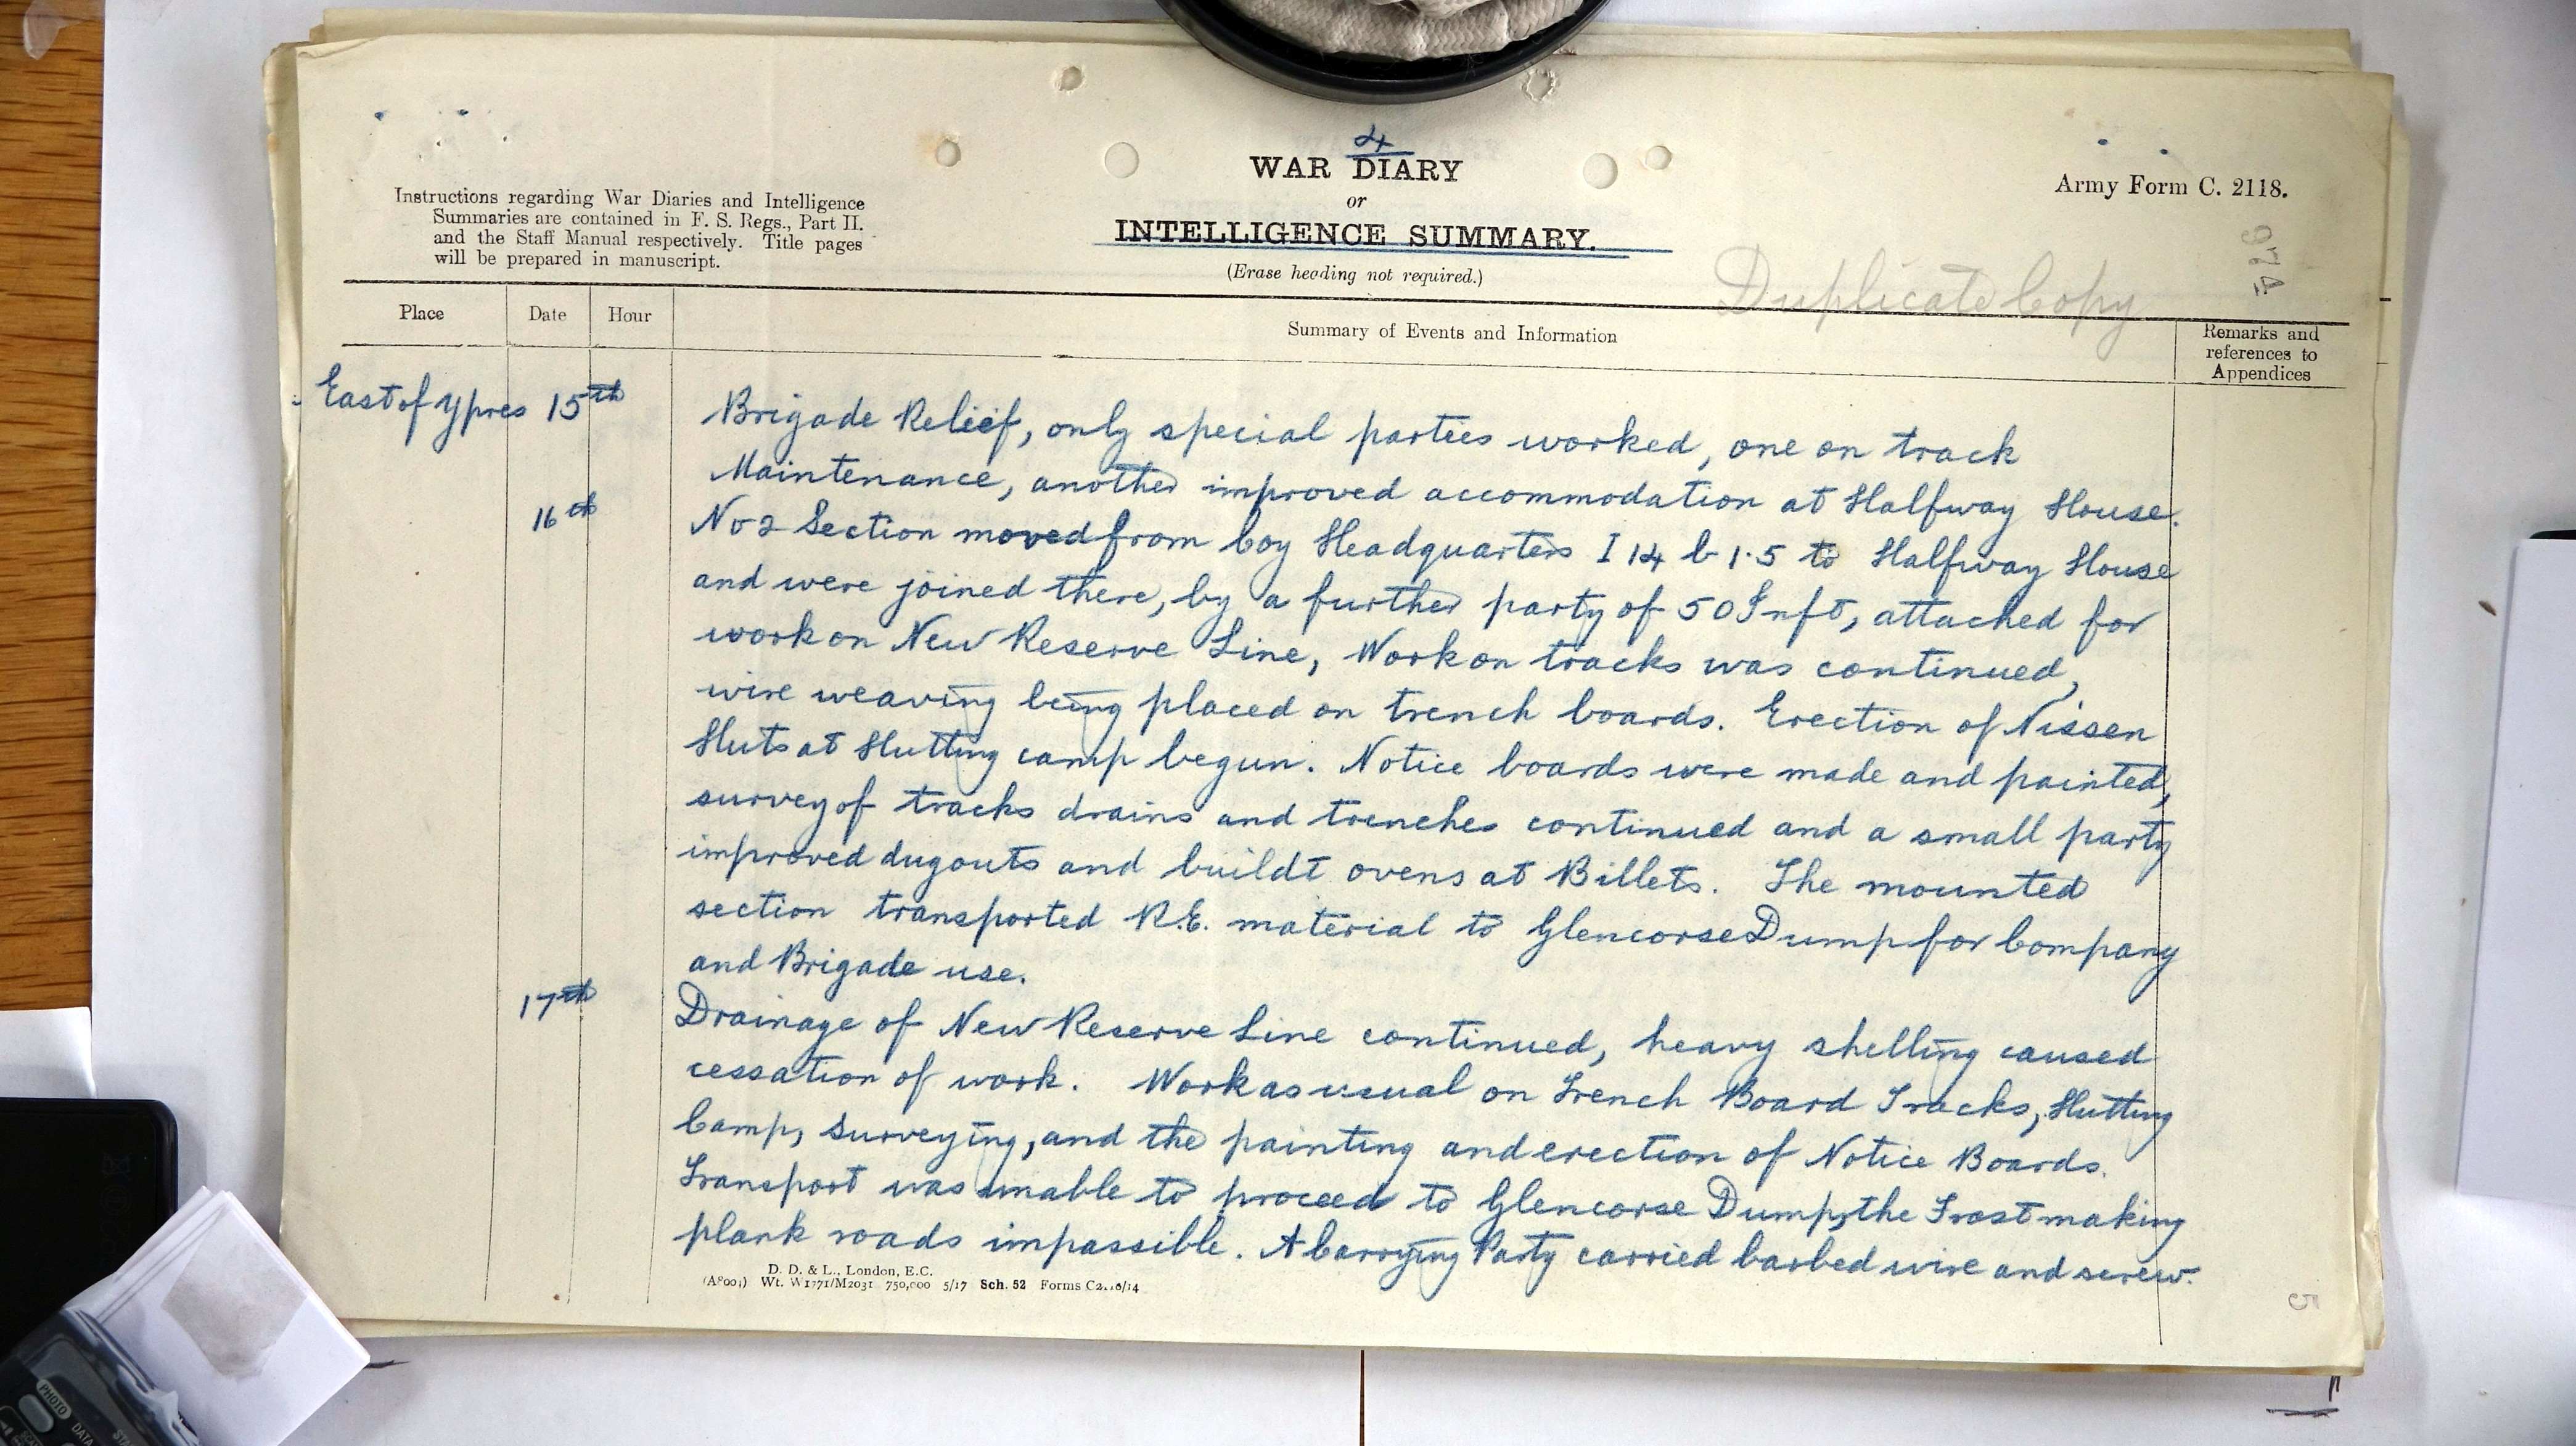 4
WAR DIARY
or
INTELLIGENCE SUMMARY.
(Erase heading not required.)
Instructions regarding War Diaries and Intelligence
Summaries are contained in F. S. Regs., Part II.
and the Staff Manual respectively. Title pages
will be prepared in manuscript.
Army Form C. 2118.
Duplicate Copy
Place Date Hour Summary of Events and Information Remarks and
references to
Appendices
East of Ypres 15th Brigade Relief, only special parties worked, one on track
Maintenance, another improved accommodation at Halfway House.
16th No 2 Section moved from Coy Headquarters I 14 b 1.5 to Halfway House
and were joined there, by a further party of 50 Inft, attached for
work on New Reserve Line, Work on tracks was continued,
wire weaving being placed on trench boards. Erection of Nissen
Huts at Hutting camp begun. Notice boards were made and painted,
survey of tracks drains and trenches continued and a small party
improved dugouts and buildt ovens at Billets. The mounted
section transported R.E. material to Glencorse Dump for Company
and Brigade use.
17th Drainage of New Reserve Line continued, heavy shelling caused
cessation of work. Work as usual on Trench Board Tracks, Hutting
Camp, Surveying, and the painting and erection of Notice Boards.
Transport was unable to proceed to Glencorse Dump, the Frost making
plank roads impassible. A Carrying Party carried barbed wire and screw.
D. D. & L., London, E.C.
Wt. W1771/M2031 750,000 5/17 Sch. 52 Forms
5
PHOTO
DATA